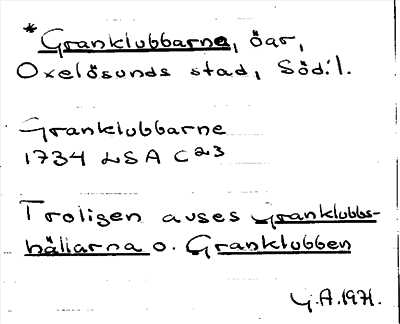 *Granklubbarne, öar,
Oxelösunds stad, Söd:l.
Granklubbarne
1734 LSA C23
Troligen avses Granklubbs-
hällarna o. Granklubben
G.A. 1971.